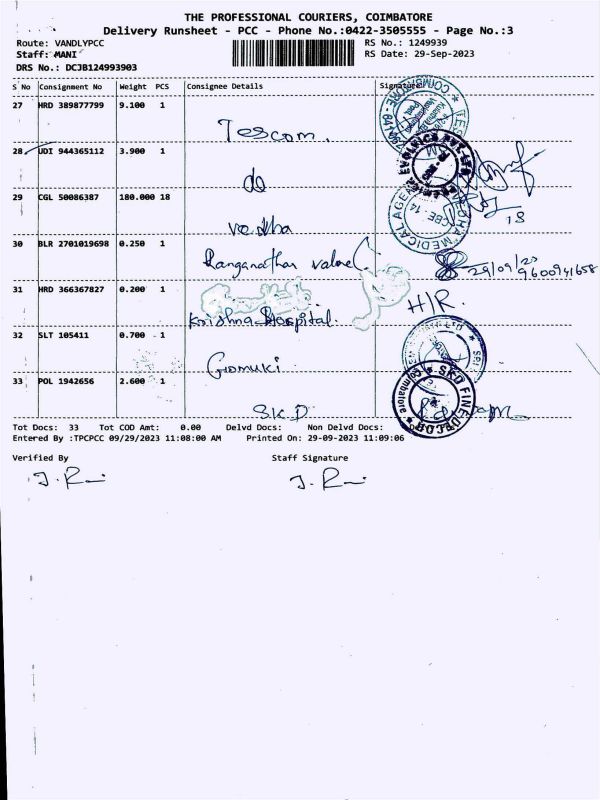 THE PROFESSIONAL COURIERS, COIMBATORE
Delivery Runsheet - PCC - Phone No.:0422-3505555 - Page No.:3
Route: VANDLYPCC RS No.: 1249939
Staff: MANI RS Date: 29-Sep-2023
DRS No.: DCJB124993903
S No Consignment No Weight PCS Consignee Details Signature
27 HRD 389877799 9.100 1
Tescom.
28 UDI 944365112 3.900 1
do
29 CGL 50086387 180.000 18
vedha
18
30 BLR 2701019698 0.250 1
Ranganathar valave
29/09/23
9600941658
31 HRD 366367827 0.200 1
H/R.
Krishna Hospital.
32 SLT 105411 0.700 1
Gomuki
33 POL 1942656 2.600 1
SKD
Tot Docs: 33 Tot COD Amt: 0.00 Delvd Docs: Non Delvd Docs:
Entered By :TPCPCC 09/29/2023 11:08:00 AM Printed On: 29-09-2023 11:09:06
Verified By Staff Signature